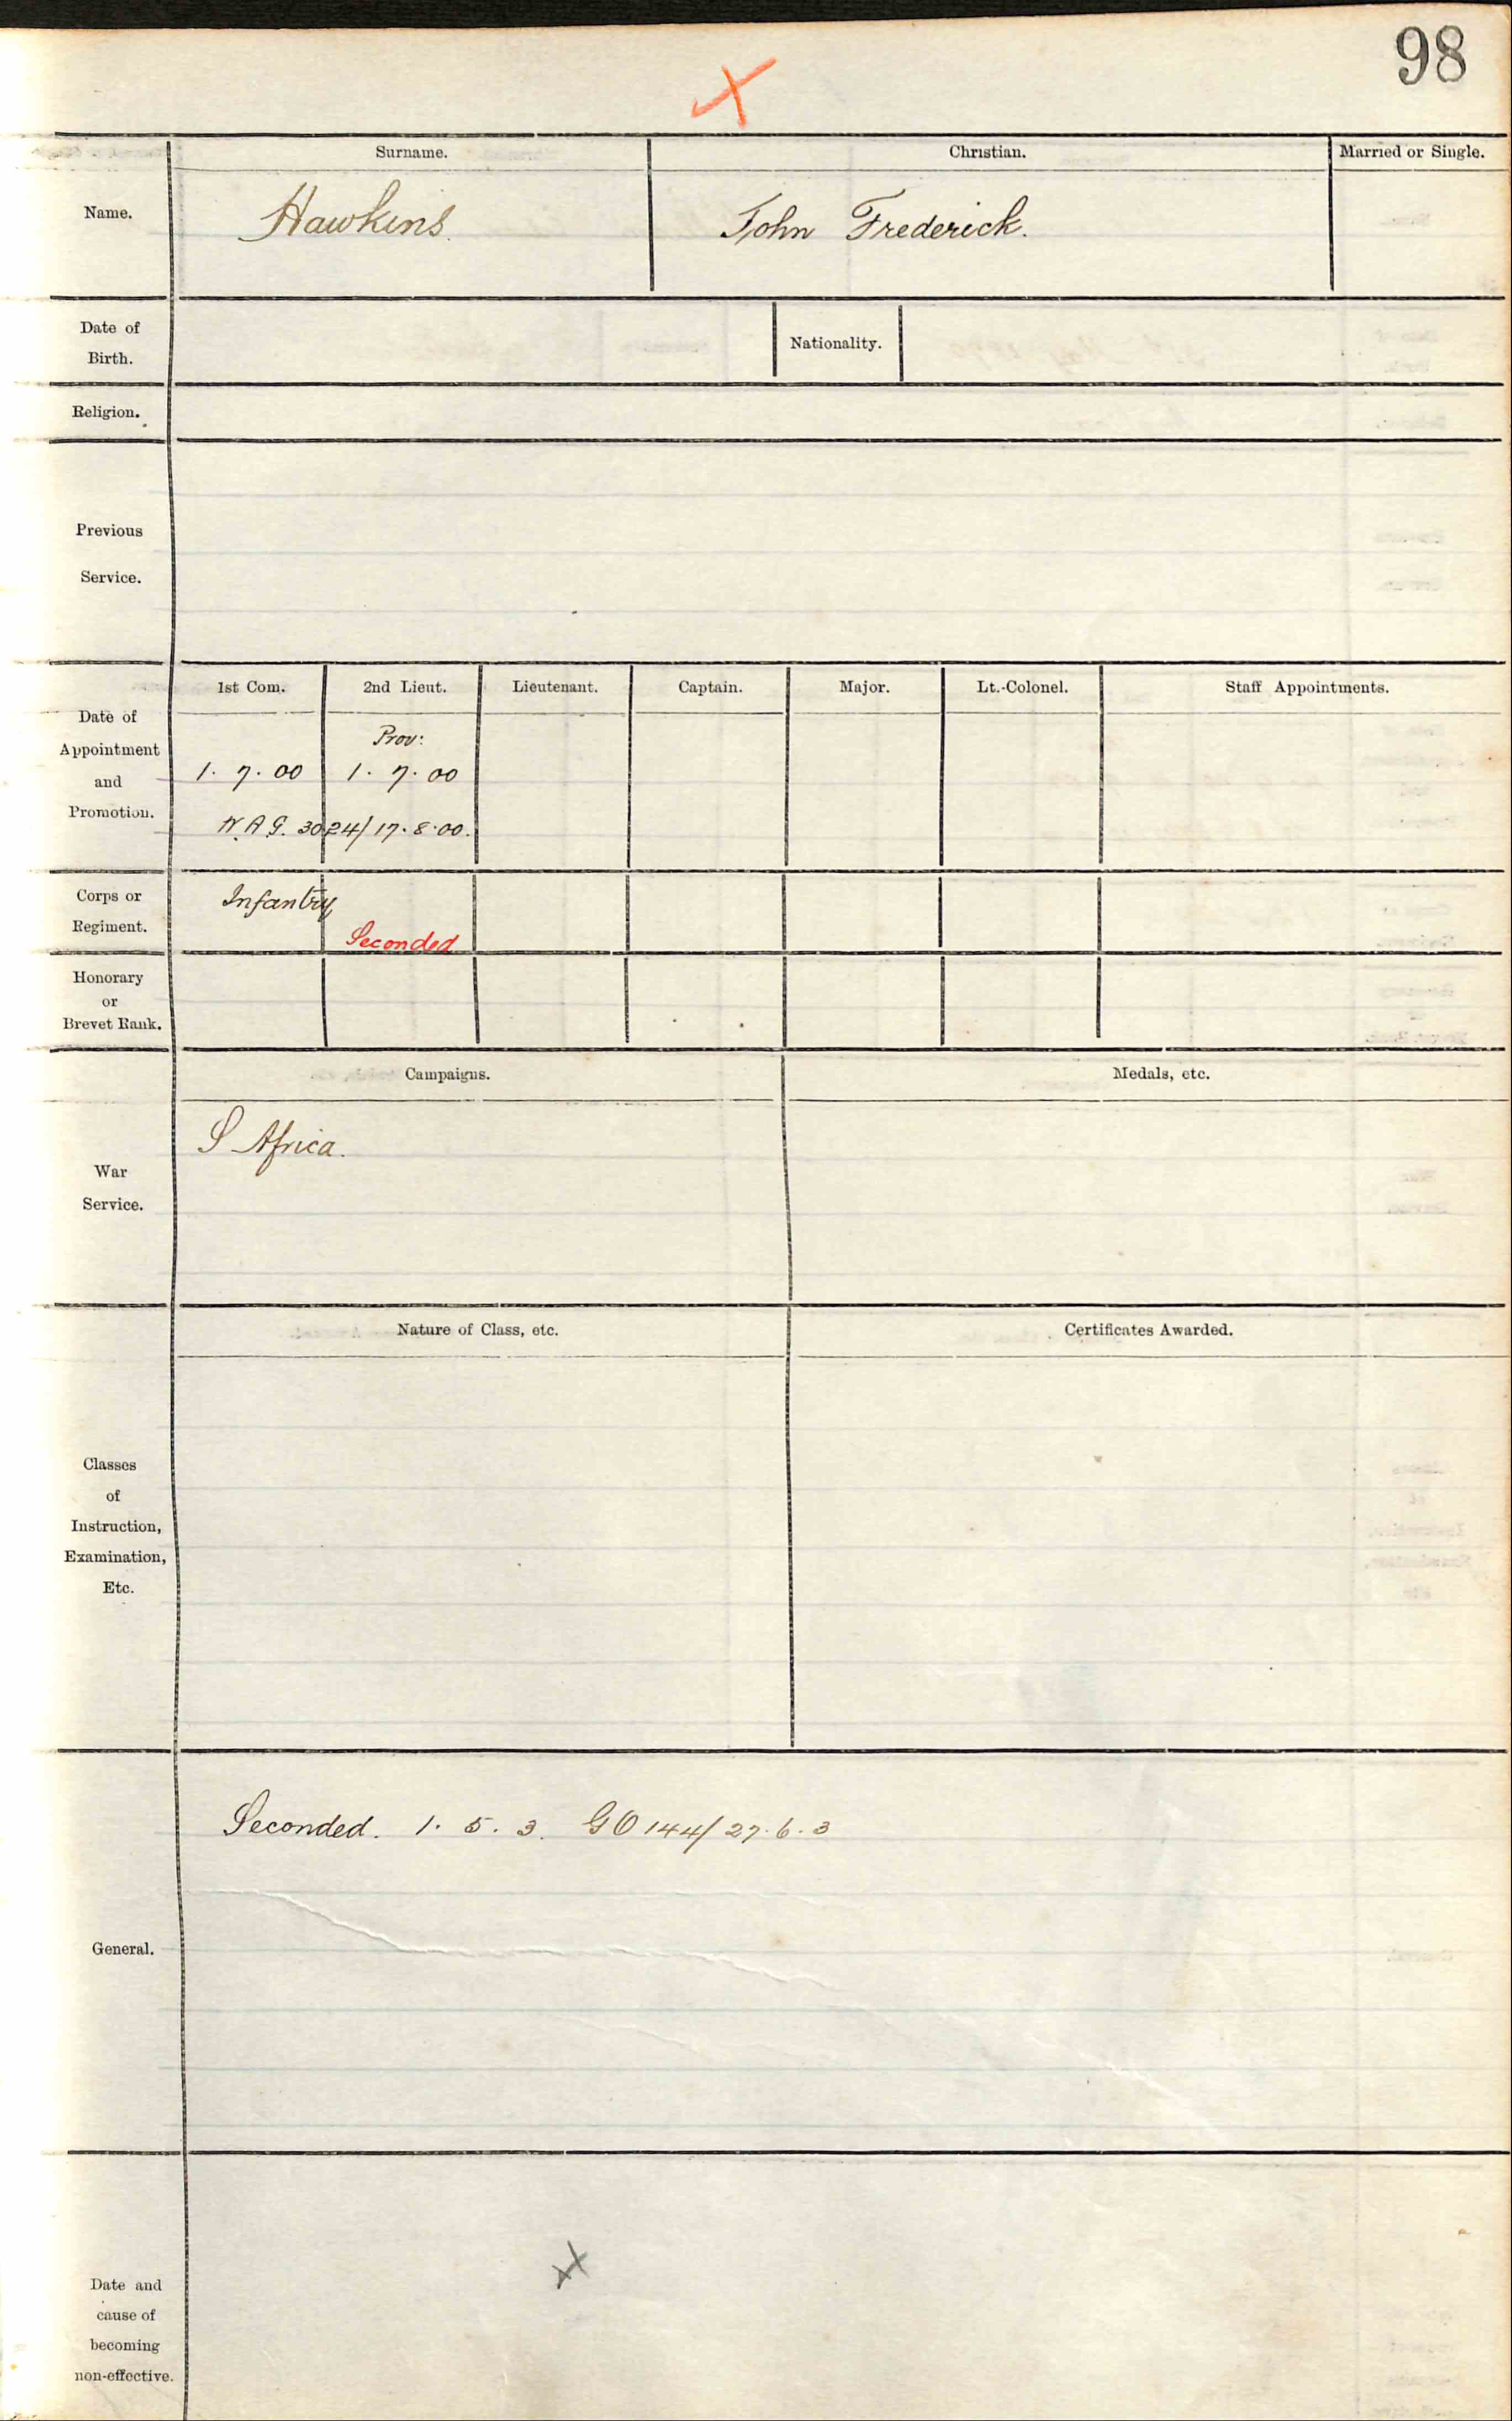 98
Surname. Christian. Married or Single.
Name. Hawkins. John Frederick.
Date of Birth. Nationality.
Religion.
Previous Service.
1st Com. 2nd Lieut. Lieutenant. Captain. Major. Lt.-Colonel. Staff Appointments.
Date of Appointment and Promotion.
Prov:
1. 7. 00 1. 7. 00
W.A.G. 3024/17.8.00.
Corps or Regiment. Infantry
Seconded
Honorary or Brevet Rank.
Campaigns. Medals, etc.
War Service. S Africa.
Nature of Class, etc. Certificates Awarded.
Classes of Instruction, Examination, Etc.
Seconded. 1. 5. 3. GO 144/27.6.3
General.
Date and cause of becoming non-effective.